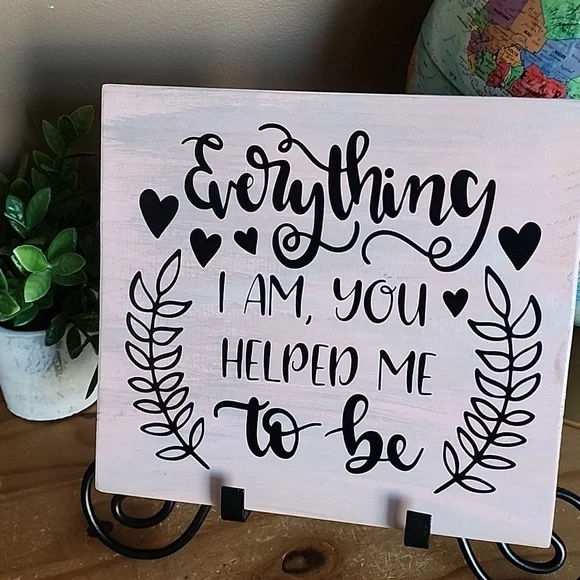 Everything
I AM, YOU
HELPED ME
to be